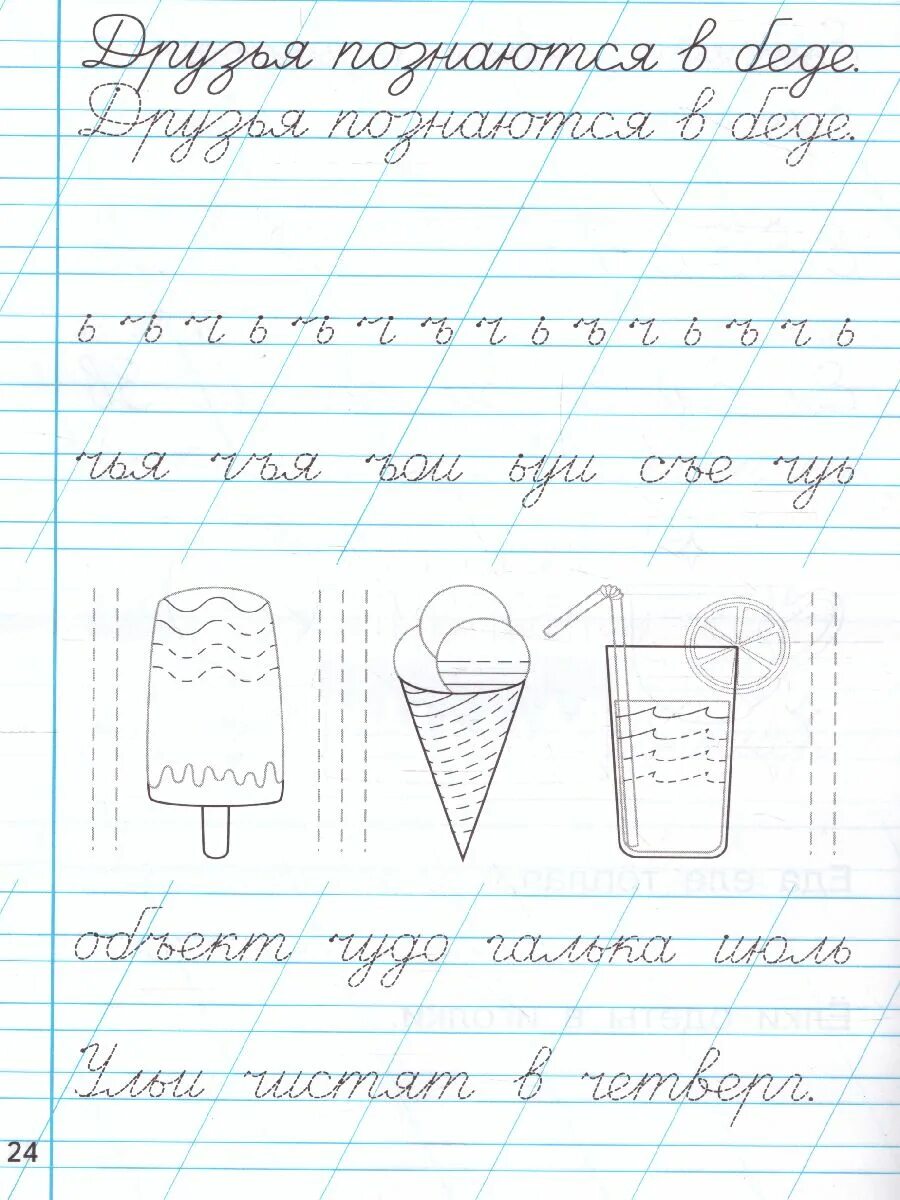 Друзья познаются в беде.
Друзья познаются в беде.
ь ъ ч ь ъ ч ъ ч ь ъ ч ь ъ ч ь
чья чъя ъои ьуи съе чуь
объект чудо галька июль
Ульи чистят в четверг.
24